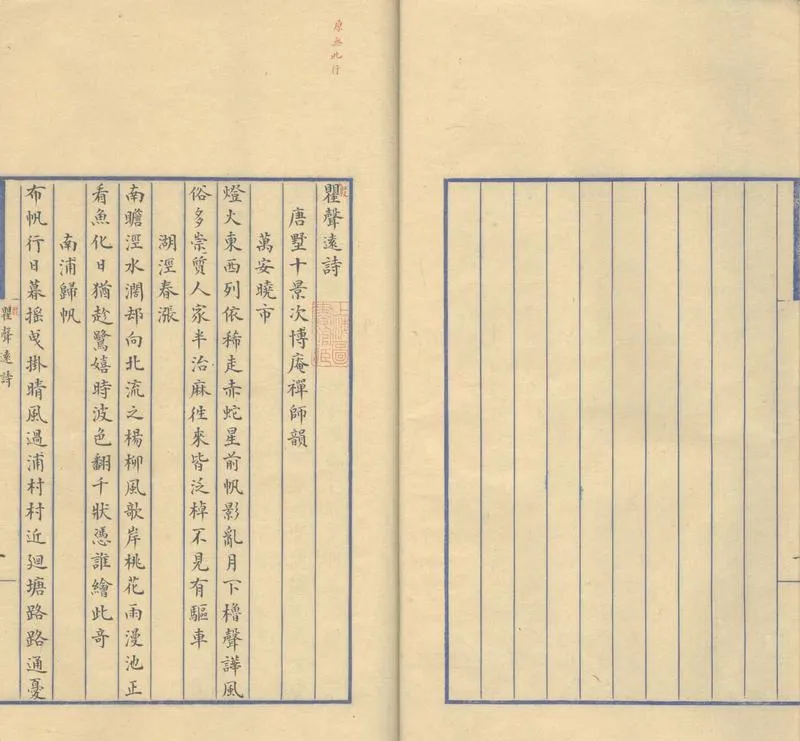 原無此行
瞿聲遠詩
唐墅十景次博庵禪師韻
萬安曉市
燈火東西列依稀走赤蛇星前帆影亂月下櫓聲譁風
俗多崇質人家半治麻徃來皆泛棹不見有驅車
湖涇春漲
南瞻涇水濶却向北流之楊柳風歌岸桃花雨漫池正
看魚化日猶趁鷺嬉時波色翻千狀憑誰繪此奇
南浦歸帆
布帆行日暮摇曳掛晴風過浦村村近廻塘路路通憂
瞿聲遠詩